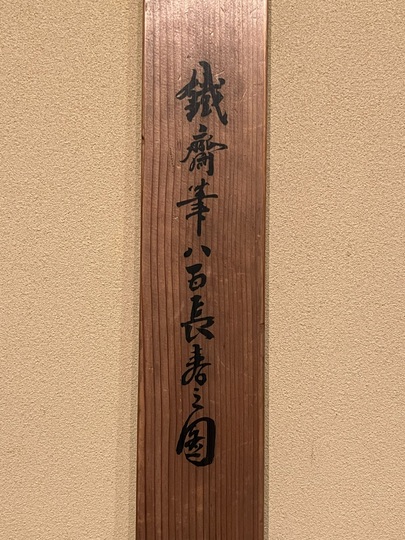 鐵齋筆八百長春之圖